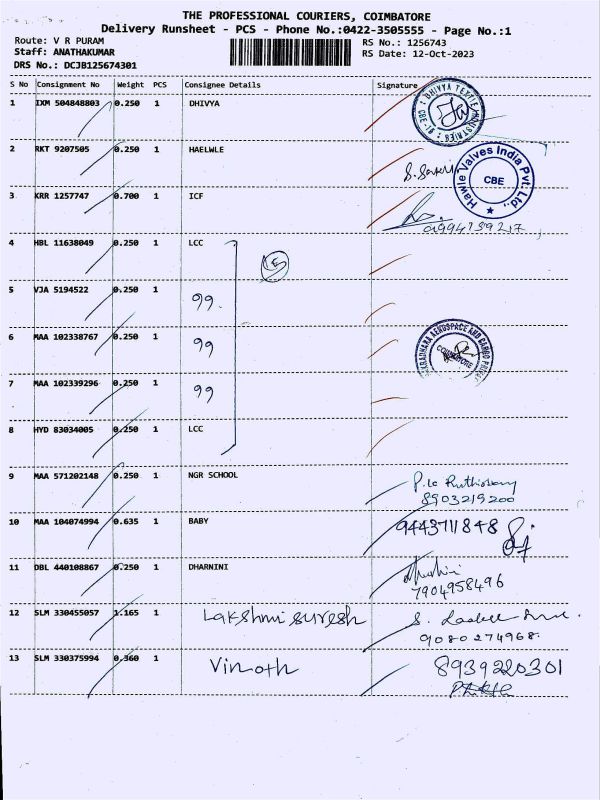 THE PROFESSIONAL COURIERS, COIMBATORE
Delivery Runsheet - PCS - Phone No.:0422-3505555 - Page No.:1
Route: V R PURAM
Staff: ANATHAKUMAR
DRS No.: DCJB125674301
RS No.: 1256743
RS Date: 12-Oct-2023
S No Consignment No Weight PCS Consignee Details Signature
1 IXM 504848803 0.250 1 DHIVYA
DHIVYA TEXTILE INDUSTRIES
2 RKT 9207505 0.250 1 HAELWLE
Hawle Valves India Pvt. Ltd.,
CBE
3 KRR 1257747 0.700 1 ICF
0994139217
4 HBL 11638049 0.250 1 LCC
5 VJA 5194522 0.250 1 99
6 MAA 102338767 0.250 1 99
AEROSPACE AND
COIMBATORE
7 MAA 102339296 0.250 1 99
8 HYD 83034005 0.250 1 LCC
9 MAA 571202148 0.250 1 NGR SCHOOL
8903219200
10 MAA 104074994 0.635 1 BABY 9443711848
11 DBL 440108867 0.250 1 DHARNINI
7904958496
12 SLM 330455057 1.165 1 Lakshmi suresh
9080274968
13 SLM 330375994 0.360 1 Vinoth 8939220301